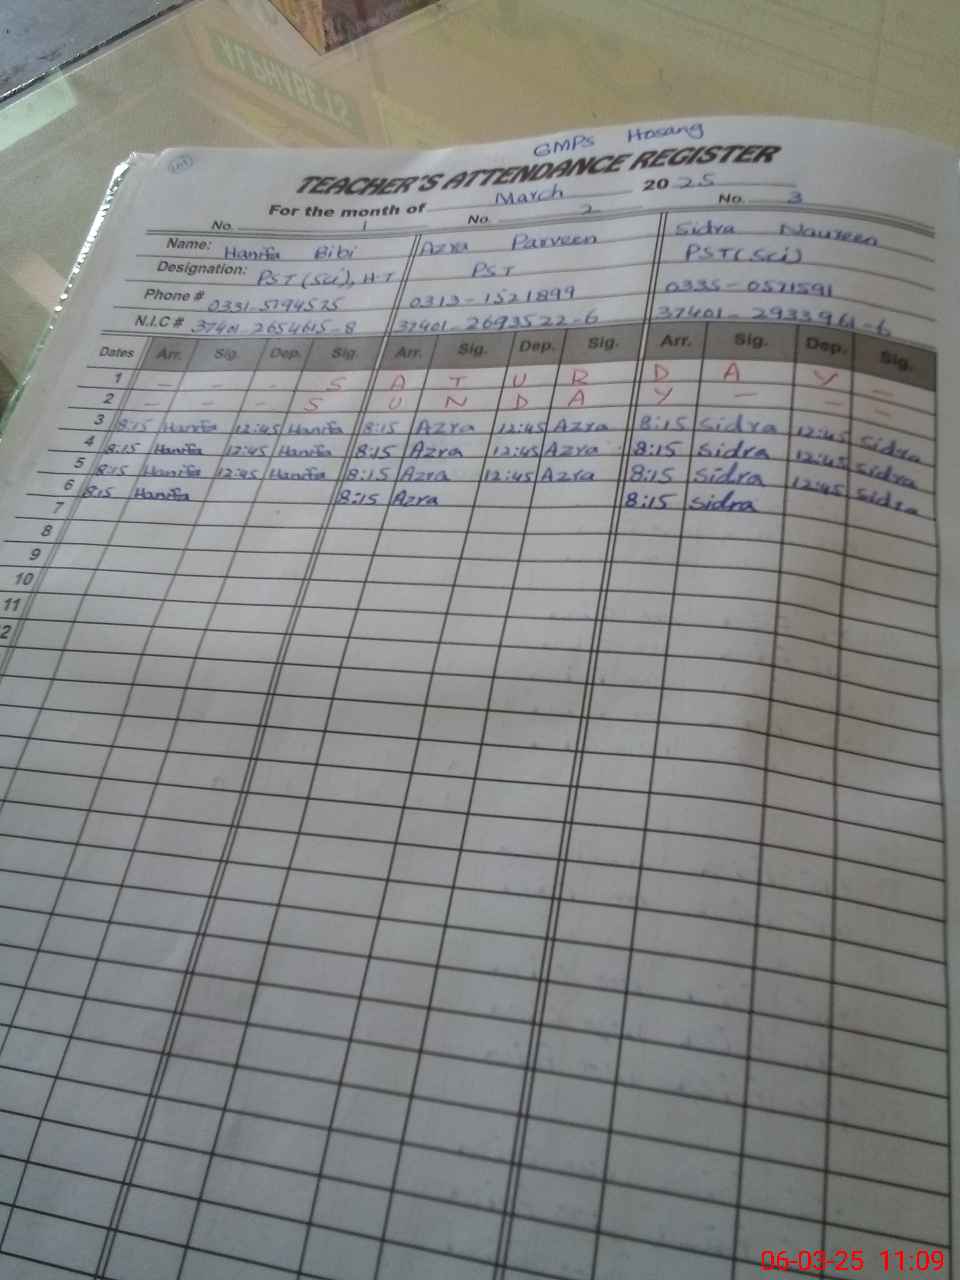 ALPHABETS
GMPS Hosang
TEACHER'S ATTENDANCE REGISTER
For the month of March 2025
No. 1 No. 2 No. 3
Name: Hanifa Bibi Azra Parveen Sidra Naureen
Designation: PST (Sci), H-T PST PST (Sci)
Phone # 0331-5794575 0313-1521899 0335-0571591
N.I.C # 37401-2654615-8 37401-2693522-6 37401-2933961-6
Dates Arr. Sig. Dep. Sig. Arr. Sig. Dep. Sig. Arr. Sig. Dep. Sig.
1 - - - S A T U R D A Y -
2 - - - S U N D A Y - - -
3 8:15 Hanifa 12:45 Hanifa 8:15 Azra 12:45 Azra 8:15 Sidra 12:45 Sidra
4 8:15 Hanifa 12:45 Hanifa 8:15 Azra 12:45 Azra 8:15 Sidra 12:45 Sidra
5 8:15 Hanifa 12:45 Hanifa 8:15 Azra 12:45 Azra 8:15 Sidra 12:45 Sidra
6 8:15 Hanifa 8:15 Azra 8:15 Sidra
7
8
9
10
11
2
06-03-25 11:09